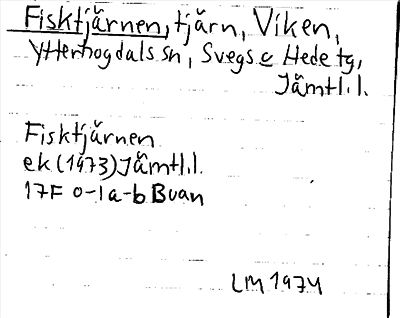 Fisktjärnen, tjärn, Viken,
Ytterhogdals sn, Svegs o Hede tg,
Jämtl.l.
Fisktjärnen
ek (1973) Jämtl.l.
17F 0-1a-b Buan
LM 1974